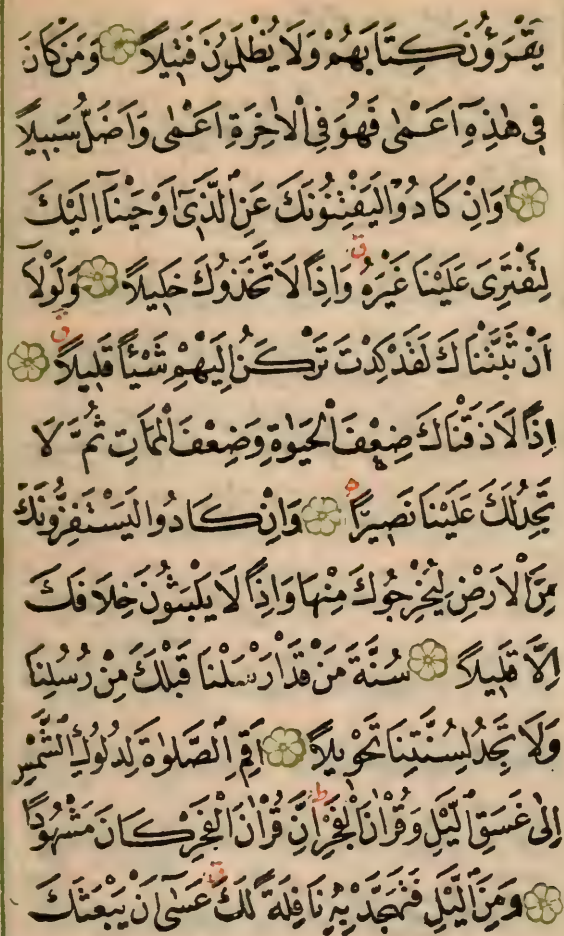 يَقْرَؤُنَ كِتَابَهُمْ وَلَا يُظْلَمُونَ فَتِيلًا وَمَنْ كَانَ
فِي هٰذِهِٓ اَعْمٰى فَهُوَ فِي الْاٰخِرَةِ اَعْمٰى وَاَضَلُّ سَبِيلًا
وَاِنْ كَادُوا لَيَفْتِنُونَكَ عَنِ الَّذِٓي اَوْحَيْنَٓا اِلَيْكَ
لِتَفْتَرِيَ عَلَيْنَا غَيْرَهُ ق وَاِذًا لَاتَّخَذُوكَ خَلِيلًا وَلَوْلَٓا
اَنْ ثَبَّتْنَاكَ لَقَدْ كِدْتَ تَرْكَنُ اِلَيْهِمْ شَيْـًٔا قَلِيلًا ق
اِذًا لَاَذَقْنَاكَ ضِعْفَ الْحَيٰوةِ وَضِعْفَ الْمَمَاتِ ثُمَّ لَا
تَجِدُ لَكَ عَلَيْنَا نَصِيرًا وَاِنْ كَادُوا لَيَسْتَفِزُّونَكَ
مِنَ الْاَرْضِ لِيُخْرِجُوكَ مِنْهَا وَاِذًا لَا يَلْبَثُونَ خِلَافَكَ
اِلَّا قَلِيلًا سُنَّةَ مَنْ قَدْ اَرْسَلْنَا قَبْلَكَ مِنْ رُسُلِنَا
وَلَا تَجِدُ لِسُنَّتِنَا تَحْوِيلًا اَقِمِ الصَّلٰوةَ لِدُلُوكِ الشَّمْسِ
اِلٰى غَسَقِ الَّيْلِ وَقُرْاٰنَ الْفَجْرِ ط اِنَّ قُرْاٰنَ الْفَجْرِ كَانَ مَشْهُودًا
وَمِنَ الَّيْلِ فَتَهَجَّدْ بِهِ نَافِلَةً لَكَ ق عَسٰٓى اَنْ يَبْعَثَكَ